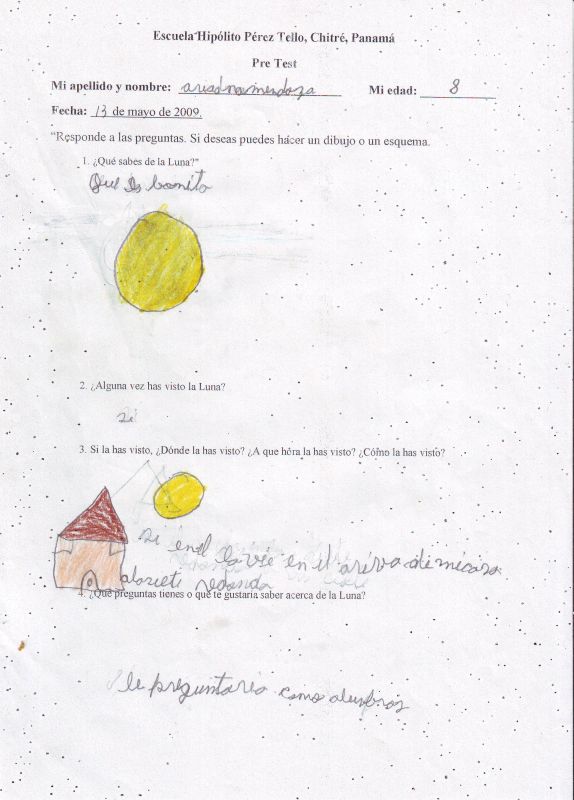 Escuela Hipólito Pérez Tello, Chitré, Panamá
Pre Test
Mi apellido y nombre: ariadna mendoza Mi edad: 8
Fecha: 13 de mayo de 2009.
"Responde a las preguntas. Si deseas puedes hacer un dibujo o un esquema.
1. ¿Qué sabes de la Luna?"
Que es bonito
2. ¿Alguna vez has visto la Luna?
si
3. Si la has visto, ¿Dónde la has visto? ¿A que hora la has visto? ¿Cómo la has visto?
si en el la vie en el ariva de mi casa
redonda
4. ¿Qué preguntas tienes o qué te gustaría saber acerca de la Luna?
le preguntaria como alunbras